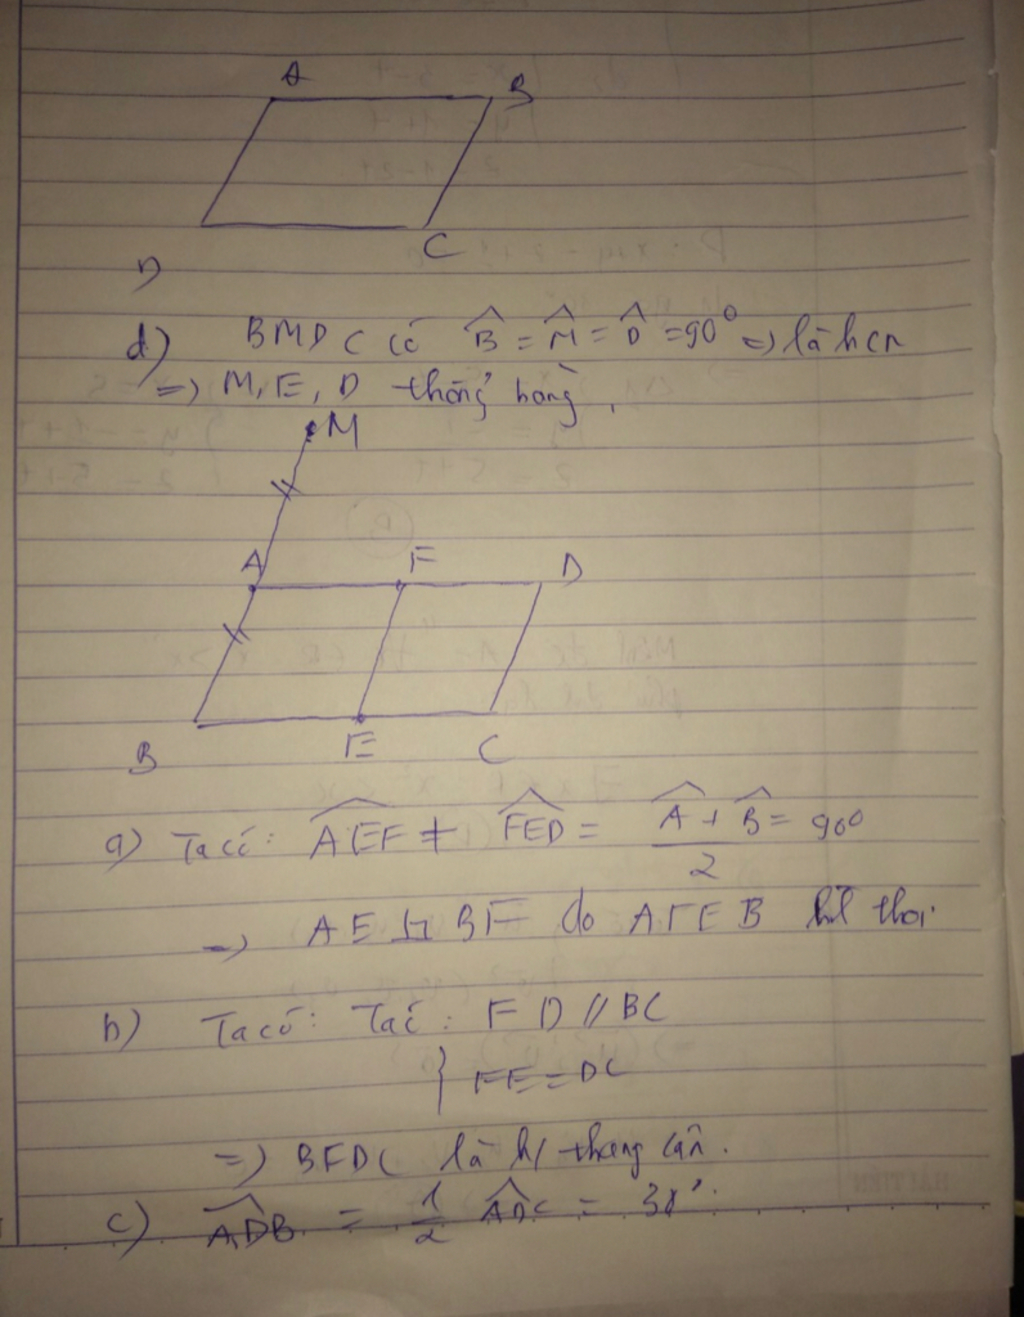 A B
C
D
d) BMDC có B̂ = M̂ = D̂ = 90° => là hcn
=> M, E, D thẳng hàng.
M
A F D
B E C
a) Ta có: AEF + FED = Â + B̂ / 2 = 90°
=> AE ⊥ BF do AFEB hì thoi.
b) Ta có: Ta có: FD // BC
} FE = DC
=> BFDC là ht thang cân.
c) ADB = 1/2 ADC = 30°.